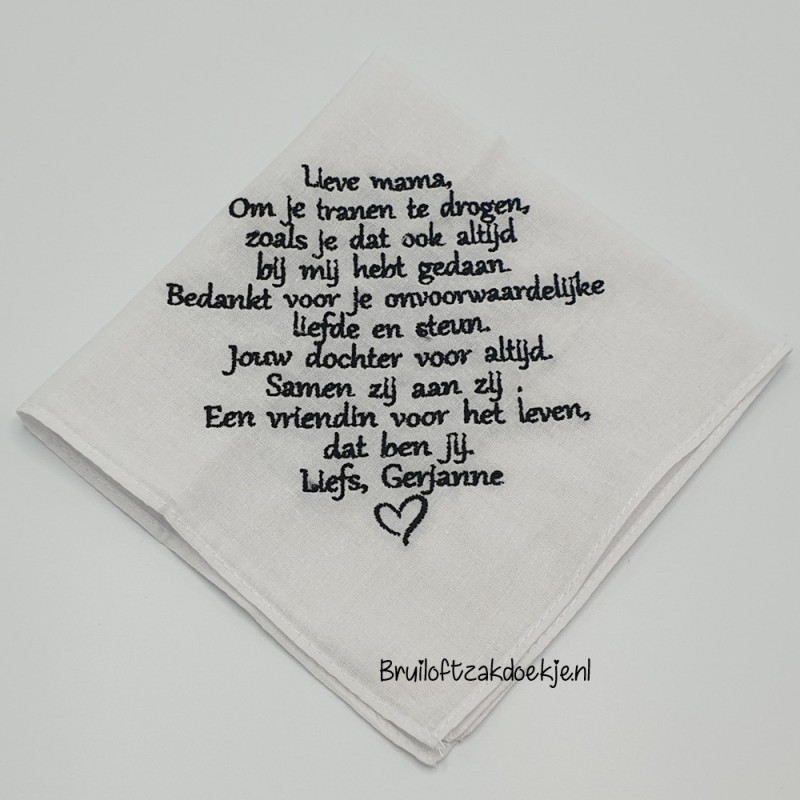 Lieve mama,
Om je tranen te drogen,
zoals je dat ook altijd
bij mij hebt gedaan.
Bedankt voor je onvoorwaardelijke
liefde en steun.
Jouw dochter voor altijd.
Samen zij aan zij .
Een vriendin voor het leven,
dat ben jij.
Liefs, Gerjanne
Bruiloftzakdoekje.nl